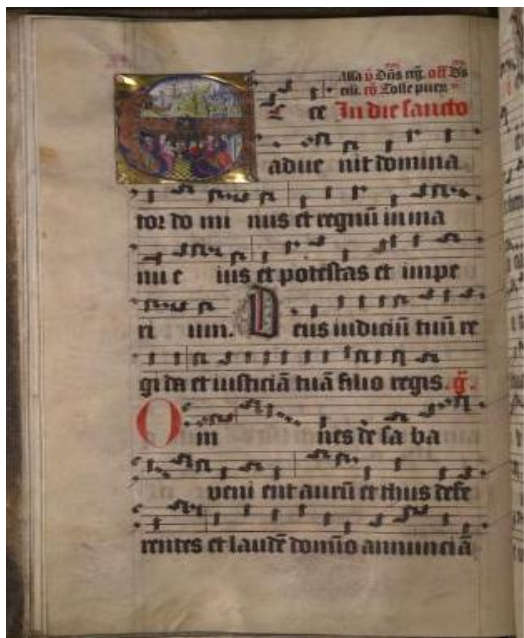 Alla ṽ Dñs reg. off Ds
eili. cõ Tolle puer
E cce In die sancto
adue nit domina
tor do mi nus et regnũ in ma
nu e ius et potestas et impe
ri um. Deus iudiciũ tuũ re
gi da et iusticiã tuã filio regis. g̃.
Om nes de sa ba
veni ent aurũ et thus defe
rentes et laudẽ domĩo annunciã